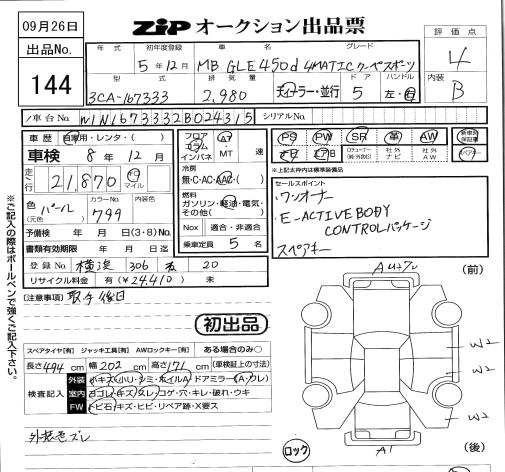 09月26日
出品No.
144
ZIP オークション出品票
評価点
4
内装
B
年式
初年度登録
車名
グレード
5年12月
MB GLE450d 4MATIC クーペスポーツ
型式
排気量
ドア
ハンドル
3CA-167333
2,980
ディーラー・並行
5
左・右
車台No.
W1N1673332B024315
シリアルNo.
車歴
自家用・レンタ・( )
車検
8年12月
走行
21,870
km
マイル
色
(元色)
パール
カラーNo.
799
内装色
予備検 年 月 日(3・8)No.
書類有効期限 年 月 日迄
登録No. 横浜 306 20
リサイクル料金 有(¥24,410) 未
フロア
コラム
インパネ
AT
MT
速
冷房
無・C・AC・AAC・( )
燃料
ガソリン・軽油・電気・その他( )
Nox 適合・非適合
乗車定員 5 名
PS PW SR 革 AW 新車時保証書
ナビ TV エアB ロドチューナー 社外ナビ 社外AW
※上記太枠内は標準装備品
セールスポイント
・ワンオーナー
・E-ACTIVEBODY
CONTROLパッケージ
スペアキー
[注意事項] 取手後日
初出品
スペアタイヤ[有] ジャッキ工具[有] AWロックキー[有] ある場合のみ○
長さ 494 cm 幅 202 cm 高さ 171 cm (車検証上の寸法)
検査記入
外装 小キズ(小)・シミ・ホイルA・ドアミラー(A・ワレ)
室内 ヨゴレ・キズ・スレ・コゲ・穴・キレ・破れ・ウキ
FW トビ石・キズ・ヒビ・リペア跡・X要ス
外装色ズレ
(前)
W2
W2
W2
A1
(後)
ロック
※ご記入の際はボールペンで強くご記入下さい。